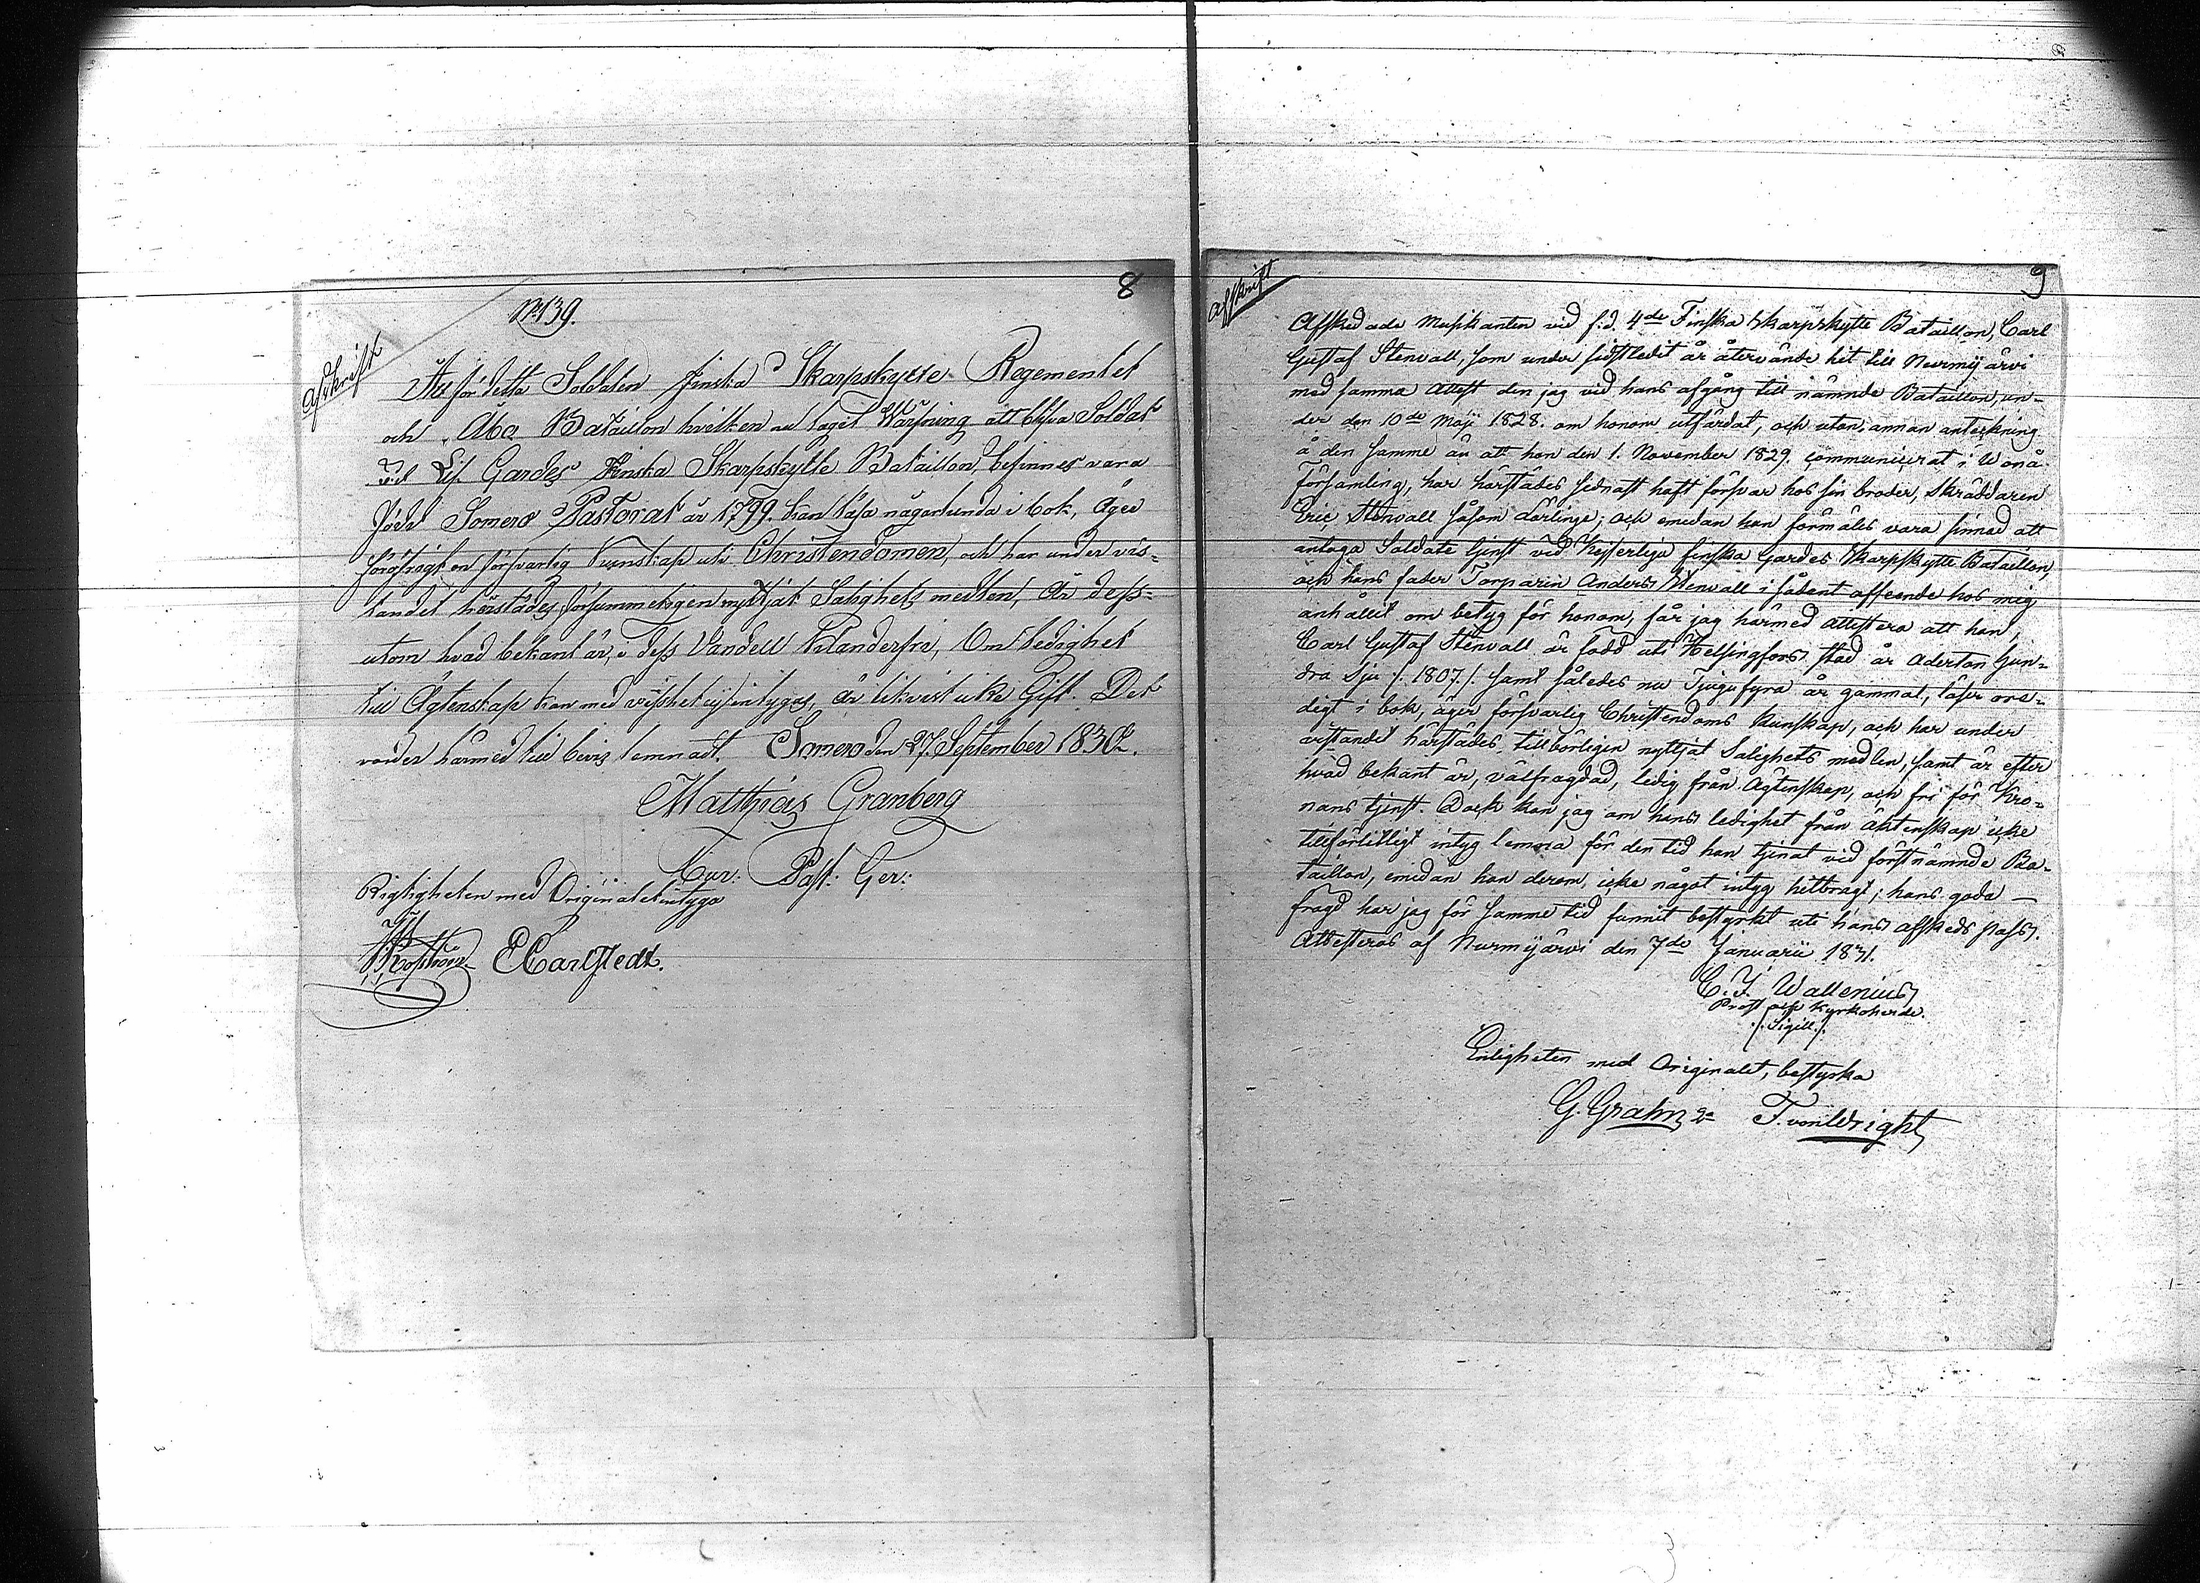 8
No 139.
Afskrift
At för detta Soldaten Finska Skarpskytte Regementet
och Åbo Bataillon hvilken nu taget Värfning att blifva Soldat
vid Lif Gardes Finska Skarpskytte Bataillon, befinnes vara
född Somero Pastorat år 1799. kan läsa någorlunda i bok, äger
försvarlig kunskap uti Christendomen, och har under vis-
tandet härstädes, försummeligen nyttjat Salighets medlen, Är dess-
utom hvad bekant är, i dess Vandell Oklanderfri, Om ledighet
till Ägtenskap kan med visshet ej intygas, är likväl icke Gift. Det
varder härmed till bevis lemnadt. Somero den 27 September 1830.
Matthias Granberg
Cur: Past: Ger:
Rigtigheten med Originalet intyga
E Carlstedt.
9
Afskrift
Afskedade Musikanten vid f.d. 4de Finska Skarpskytte Bataillon, Carl
Gustaf Stenvall, som under sidstledit år återvände hit till Nurmijärvi
med samma attest den jag vid hans afgång till nämnde Bataillon, un-
der den 10de Maji 1828. om honom utfärdat, och utan annan anteckning
å den samme än att han den 1. November 1829. communicerat i Wånå
Församling, har härstädes sednast haft försvar hos sin broder, Skräddaren
Eric Stenvall såsom Lärlinge; och emedan han förmäles vara sinnad att
antaga Soldate tjenst vid Kejserliga finska Gardes Skarpskytte Bataillon,
och hans fader Torparen Anders Stenvall i sådant afseende hos mig
anhållit om betyg för honom, får jag härmed attestera att han,
Carl Gustaf Stenvall är född uti Helsingfors stad år Aderton hun-
dra Sju /: 1807 /: samt således nu Tjugufyra år gammal, läser ore-
digt i bok, äger försvarlig Christendoms kunskap, och har under
vistandet härstädes, tillbörligen nyttjat Salighets medlen, samt är efter
hvad bekant är, välfragdad, ledig från Ägtenskap, och fri för Kro-
nans tjenst. Dock kan jag om hans ledighet från äktenskap icke
tillförlitligt intyg lemna för den tid han tjenat vid förstnämnde Ba-
taillon, emedan han derom, icke något intyg hitbragt; hans goda —
fragd har jag för samme tid funnit bestyrkt uti hans afskeds pass.
Attesteras af Nurmijärvi den 7de Januarii 1831.
C. J. Wallenius
Prost och Kyrkoherde.
/: Sigill. /:
Enligheten med Originalet, bestyrka
G. Grahn T. von Wright